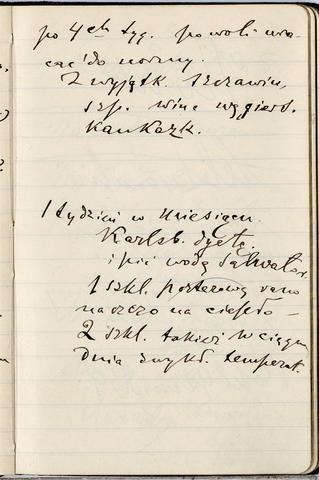 po 4ch tyg. powoli wra
cać do normy.
Z wyjątk. szczawiu,
szp. wina węgiers.
Kaukazk.
1 tydzień w miesiącu
Karlsb. dyetę
i pić wodę Salvator
1 szkl. porterową rano
naczczo na ciepło –
2 szkl. takież w ciągu
dnia zwykł. temperat.